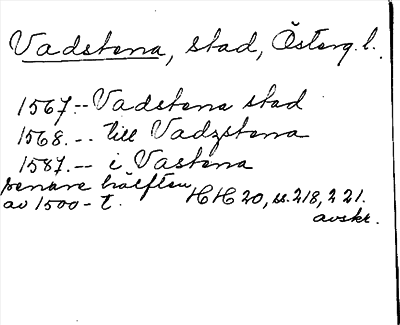 Vadstena, stad, Österg. l.
1567.-- Vadstena stad
1568.-- till Vadzstena
1587.-- i Vastena
senare hälften
av 1500-t. HH 20, ss. 218, 221.
avskr.